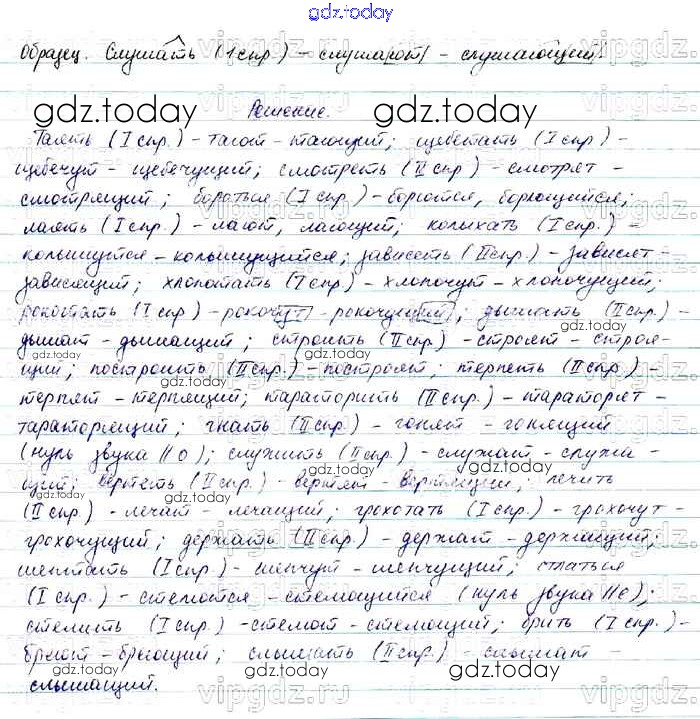 gdz.today
Образец. Слушать (I спр.) – слуша[ют] – слушающий.
gdz.today gdz.today
Решение.
Таять (I спр.) – тают – тающий; щебетать (I спр.) –
щебечут – щебечущий; смотреть (II спр.) – смотрят –
смотрящий; бороться (I спр.) – борются, борющийся;
лаять (I спр.) – лают, лающий; колыхать (I спр.) –
колышутся – колышущийся; зависеть (II спр.) – зависят –
зависящий; хлопотать (I спр.) – хлопочут – хлопочущий;
рокотать (I спр) – рокочут – рокочущий; дышать (II спр.) –
дышат – дышащий; строить (II спр.) – строят – строя-
щий; построить (II спр.) – построят; терпеть (II спр.) –
терпят – терпящий; тараторить (II спр.) – тараторят –
тараторящий; гнать (II спр.) – гонят – гонящий
(нуль звука // о); служить (II спр.) – служат – служа-
щий; вертеть (II спр.) – вертят – вертящий; лечить
(II спр.) – лечат – лечащий; грохотать (I спр.) – грохочут –
грохочущий; держать (II спр.) – держат – держащий;
шептать (I спр.) – шепчут – шепчущий; стлаться
(I спр.) – стелются – стелющийся (нуль звука // е);
стелить (I спр.) – стелют – стелющий; брить (I спр.) –
бреют – бреющий; слышать (II спр.) – слышат –
слышащий.